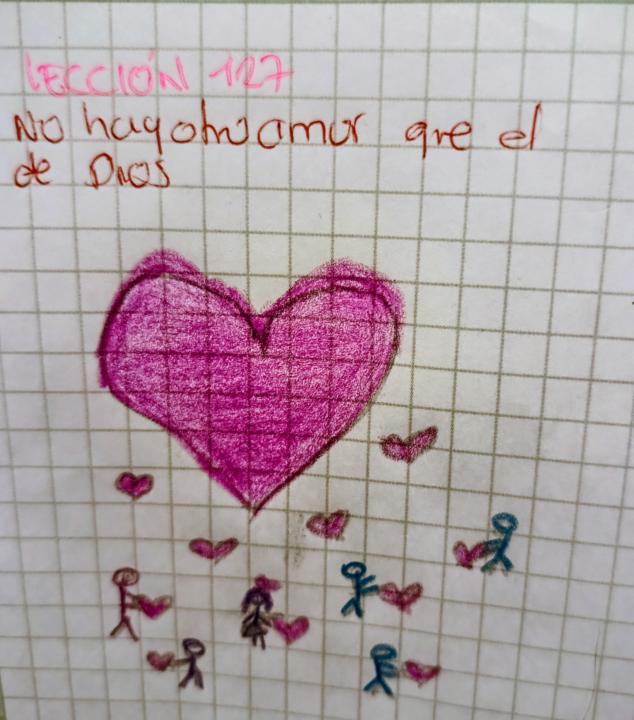 LECCIÓN 127
No hay otro amor que el
de Dios